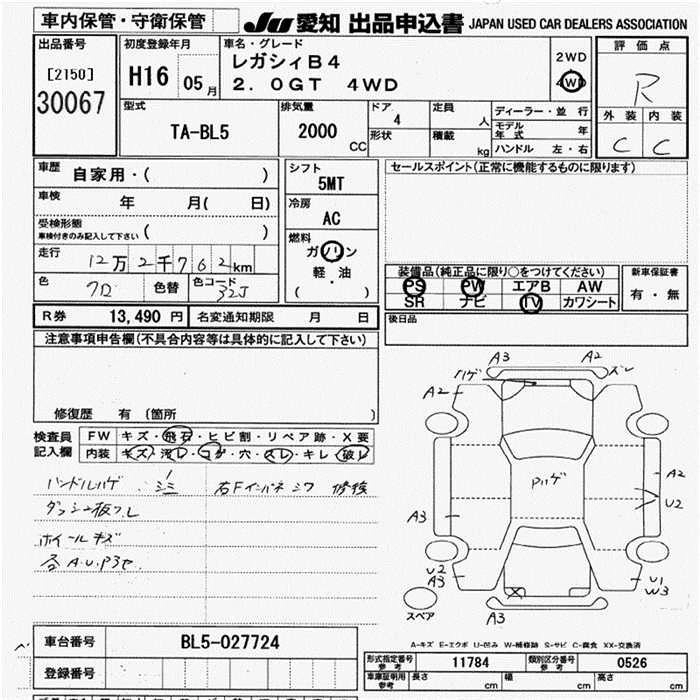 車内保管・守衛保管
JU 愛知 出品申込書 JAPAN USED CAR DEALERS ASSOCIATION
出品番号 初度登録年月 車名・グレード 評価点
[2150] H16 05月 レガシィB4 2WD
30067 2.0GT 4WD 4WD R
型式 排気量 ドア 定員 ディーラー・並行 外装 内装
TA-BL5 2000CC 4 人 モデル年式 年 C C
形状 積載 kg ハンドル 左・右
車歴 自家用・( ) シフト セールスポイント(正常に機能するものに限ります)
5MT
車検 年 月( 日) 冷房
AC
受検形態 ( )
車検付きのみ記入して下さい
燃料
ガソリン
走行 12万2千762km 軽・油
色 色替 色コード 32J ( )
装備品(純正品に限り○をつけてください) 新車保証書
PS PW エアB AW 有・無
SR ナビ TV カワシート
R券 13,490円 名変通知期限 月 日 後日品
注意事項申告欄(不具合内容等は具体的に記入して下さい)
修復歴 有 (箇所 )
検査員記入欄 FW キズ・飛石・ヒビ割・リペア跡・X要
内装 キズ・汚レ・コゲ・穴・スレ・キレ・破レ
ハンドルハゲ 右Fインパネシワ 修検
ホイールキズ
各A.U.P3セ
A3 A2
ハゲ ズレ
A2
Pハゲ
A2
U2
A3
U2
A3
U1
W3
A3
スペア
A-キズ E-エクボ U-凹み W-補修跡 S-サビ C-腐食 XX-交換済
車台番号 BL5-027724
登録番号
形式指定番号 参考 11784 類別区分番号 参考 0526
車庫証明用 参考 長さ cm 幅 cm 高さ cm